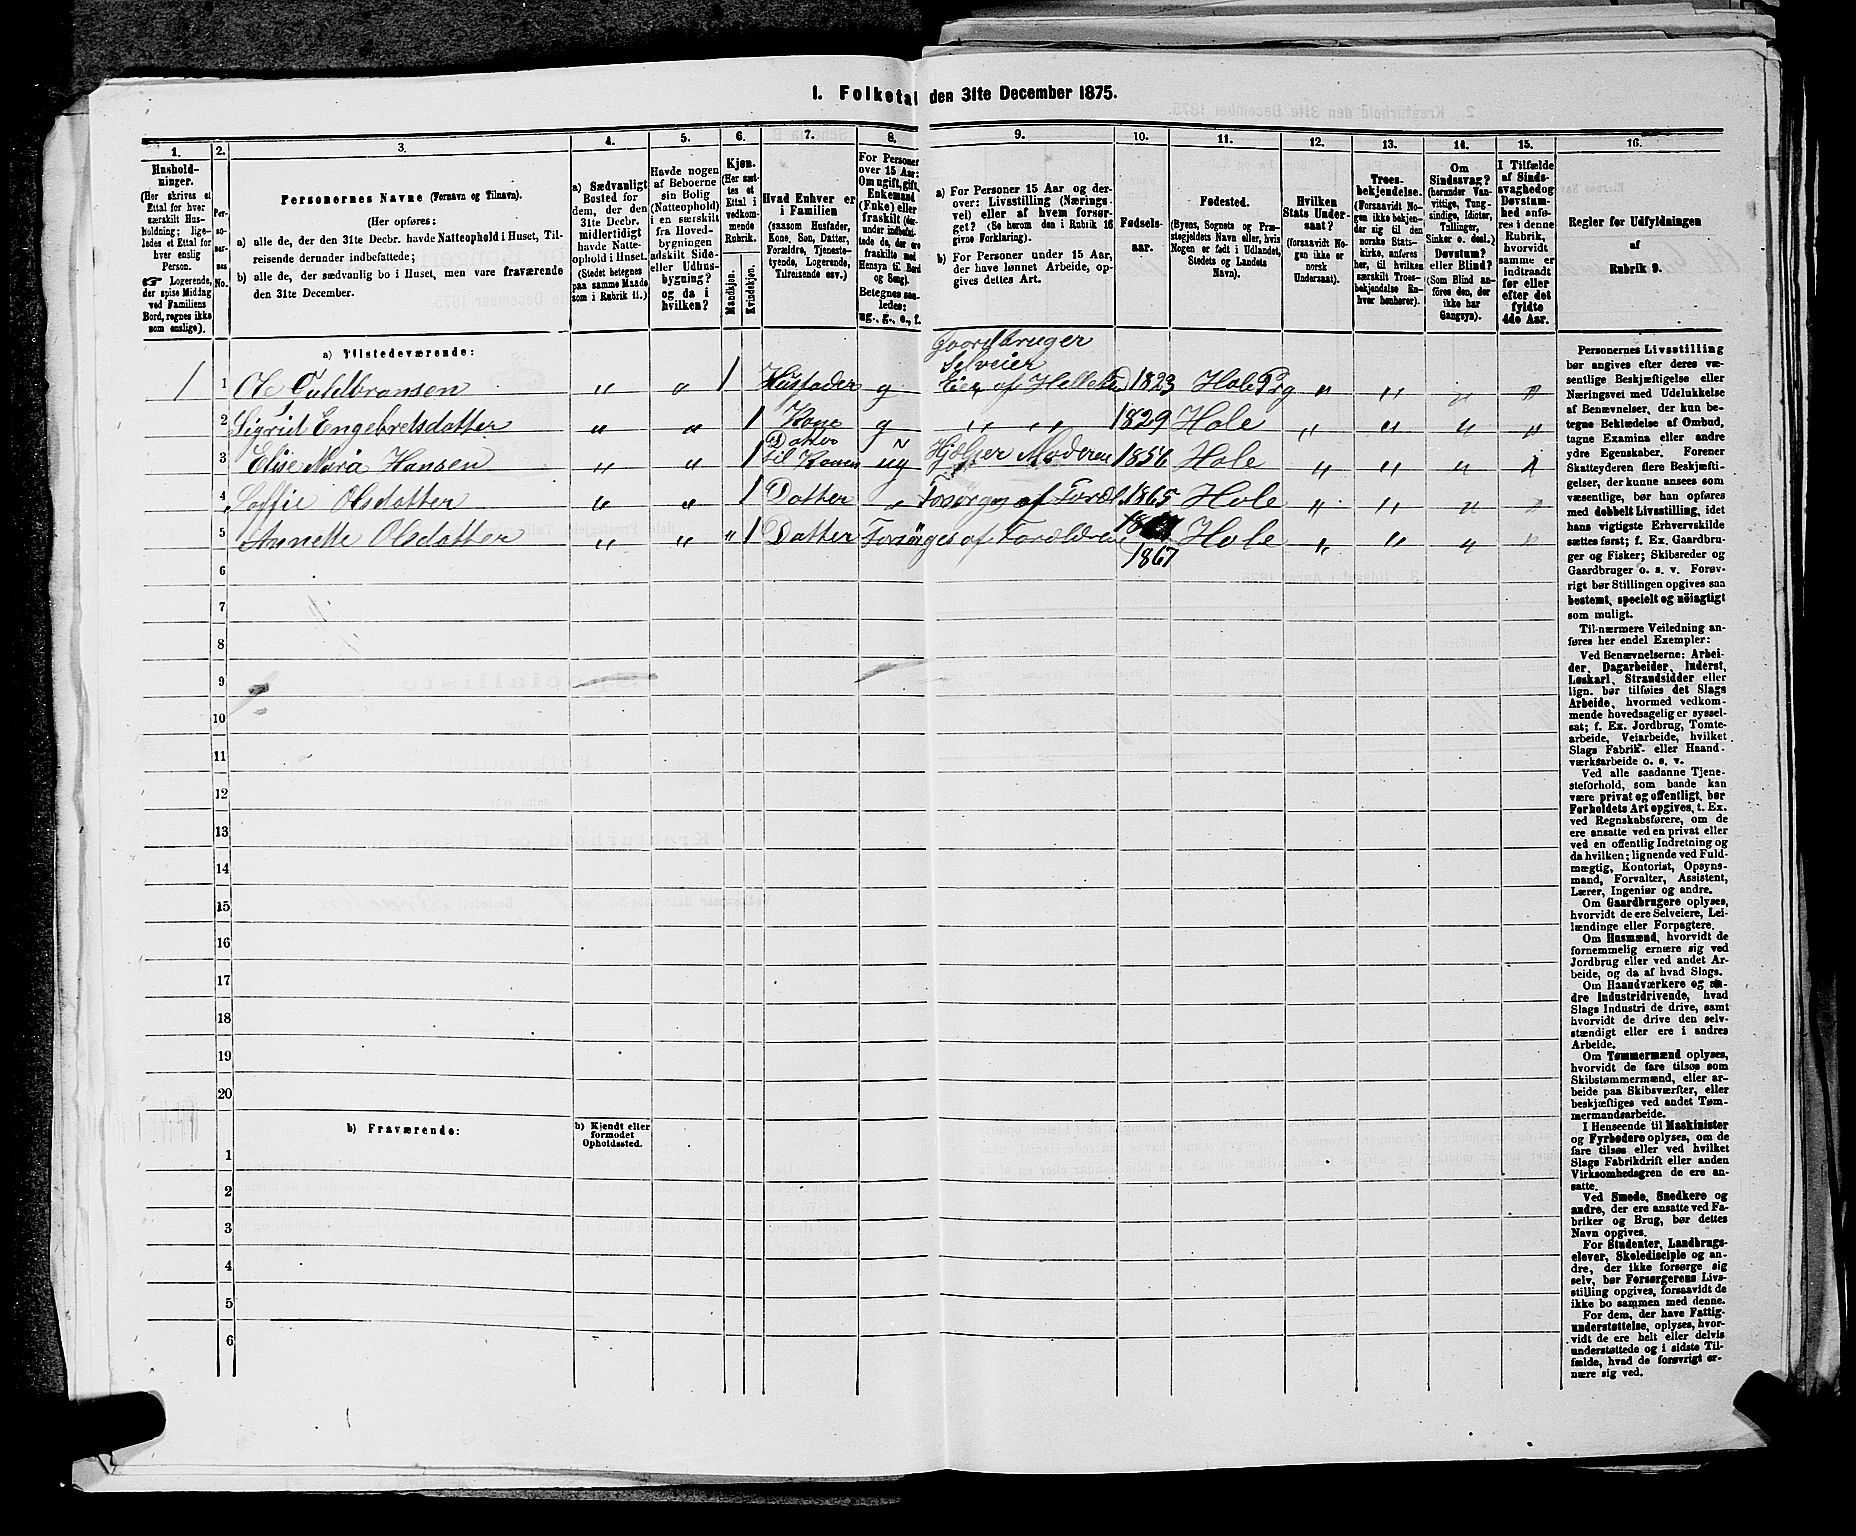 1. Folketal den 31te December 1875.
1.
Hushold-
ninger.
(Her skrives et
Ettal for hver
særskilt Hus-
holdning; lige-
ledes et Ettal for
hver enslig
Person.
Logerende,
der spise Middag
ved Familiens
Bord, regnes ikke
som enslige).
2.
Per-
so-
ner-
nes
No.
3.
Personernes Navne (Fornavn og Tilnavn).
(Her opføres:
a) alle de, der den 31te Decbr. havde Natteophold i Huset, Til-
reisende derunder indbefattede;
b) alle de, der sædvanlig bo i Huset, men vare fraværende
den 31te December.
4.
a) Sædvanligt
Bosted for
dem, der den
31te Decbr.
midlertidigt
havde Natte-
ophold i Huset.
(Stedet betegnes
paa samme Maade
som i Rubrik 11.)
5.
Havde nogen
af Beboerne
sin Bolig
(Natteophold)
i en særskilt
fra Hoved-
bygningen
adskilt Side-
eller Udhus-
bygning?
og da i
hvilken?
6.
Kjøn.
(Her sæt-
tes et
Ettal i
vedkom-
mende
Rubrik.
Mandkjøn.
Kvindekjøn.
7.
Hvad Enhver er
i Familien
(saasom Husfader,
Kone, Søn, Datter,
Forældre, Tjeneste-
tyende, Logerende,
Tilreisende osv.)
8.
For Personer
over 15 Aar:
Om ugift, gift,
Enkemand
(Enke) eller
fraskilt (der-
under indbefat-
tede de, der ere
fraskilte med
Hensyn til Bord
og Seng).
Betegnes saa-
ledes:
ug., g., e., f.
9.
a) For Personer 15 Aar og der-
over: Livsstilling (Nærings-
vei) eller af hvem forsør-
get? (Se herom den i Rubrik 16
givne Forklaring).
b) For Personer under 15 Aar,
der have lønnet Arbeide, op-
gives dettes Art.
10.
Fødsels-
aar.
11.
Fødested.
(Byens, Sognets og Præ-
stegjeldets Navn eller, hvis
Nogen er født i Udlandet,
Stedets og Landets
Navn).
12.
Hvilken
Stats Under-
saat?
(forsaavidt No-
gen ikke er
norsk
Undersaat).
13.
Troes-
bekjendelse.
(Forsaavidt No-
gen ikke bekjen-
der sig til den
norske Stats-
kirke, anføres
her, til hvilken
særskilt Troes-
bekjendelse En-
hver henhører).
14.
Om
Sindssvag?
(herunder Van-
vittige, Tung-
sindige, Idioter,
Tullinger,
Sinker o. desl.)
Døvstum?
eller Blind?
(Som Blind an-
føres den, der
ikke har
Gangsyn).
15.
I Tilfælde
af Sinds-
svaghed og
Døvstum-
hed anfø-
res i denne
Rubrik,
hvorvidt
samme er
indtraadt
før eller
efter det
fyldte
4de Aar.
16.
Regler for Udfyldningen
af
Rubrik 9.
a) Tilstedeværende:
Gaardbruger
Selveier
1 1 Ole Guldbransen " " 1 Husfader g Eier af Hellele 1823 Hole Prg " " " "
2 Sigrid Engebretsdatter " " 1 Kone g " " 1829 Hole " " " "
Datter
3 Elise Maria Hansen " " 1 til Konen ug Hjælper Moderen 1856 Hole " " " "
4 Soffie Olsdatter " " 1 Datter " Forsørges af Foræl. 1865 Hole " " " "
5 Annette Olsdatter " " " 1 Datter Forsørges af Forældrene Hole " " " "
1867
6
7
8
9
10
11
12
13
14
15
16
17
18
19
20
b) Fraværende:
b) Kjendt eller
formodet
Opholdssted.
1
2
3
4
5
6
Personernes Livsstilling
bør angives efter deres væ-
sentlige Beskjæftigelse eller
Næringsvei med Udelukkelse
af Benævnelser, der kun be-
tegne Beklædelse af Ombud,
tagne Examina eller andre
ydre Egenskaber. Forener
Skatteyderen flere Beskjæfti-
gelser, der kunne ansees som
væsentlige, bør han opføres
med dobbelt Livsstilling, idet
hans vigtigste Erhvervskilde
sættes først; f. Ex. Gaardbru-
ger og Fisker; Skibsreder og
Gaardbruger o. s. v. Forøv-
rigt bør Stillingen opgives saa
bestemt, specielt og nöiagtigt
som muligt.
Til nærmere Veiledning an-
føres her endel Exempler:
Ved Benævnelserne: Arbei-
der, Dagarbeider, Inderst,
Løskarl, Strandsidder eller
lign. bør tilføies det Slags
Arbeide, hvormed vedkom-
mende hovedsagelig er syssel-
sat; f. Ex. Jordbrug, Tomte-
arbeide, Veiarbeide, hvilket
Slags Fabrik- eller Haand-
værksarbeide o. s. v.
Ved alle saadanne Tjene-
steforhold, som baade kan
være privat og offentligt, bør
Forholdets Art opgives, t. Ex.
ved Regnskabsførere, om de
ere ansatte ved en privat eller
ved en offentlig Indretning og
da hvilken; lignende ved Fuld-
mægtig, Kontorist, Opsyns-
mand, Forvalter, Assistent,
Lærer, Ingeniør og andre.
Om Gaardbrugere oplyses,
hvorvidt de ere Selveiere, Lei-
lændinge eller Forpagtere.
Om Husmænd, hvorvidt de
fornemmelig ernære sig ved
Jordbrug eller ved andet Ar-
beide, og da af hvad Slags.
Om Haandværkere og an-
dre Industridrivende, hvad
Slags Industri de drive, samt
hvorvidt de drive den selv-
stændigt eller ere i andres
Arbeide.
Om Tømmermænd oplyses,
hvorvidt de fare tilsøs som
Skibstømmermænd, eller ar-
beide paa Skibsværfter, eller
beskjæftiges ved andet Tøm-
mermandsarbeide.
I Henseende til Maskinister
og Fyrbødere oplyses, om de
fare tilsøs eller ved hvilket
Slags Fabrikdrift eller anden
Virksomhedsgren de ere an-
satte.
Ved Smede, Snedkere og
andre, der ere ansatte ved Fa-
briker og Brug, bør dettes
Navn opgives.
For Studenter, Landbrugs-
elever, Skoledisciple og an-
dre, der ikke forsørge sig
selv, bør Forsørgerens Livs-
stilling opgives, forsaavidt de
ikke bo sammen med denne.
For dem, der have Fattig-
understøttelse, oplyses, hvor-
vidt de ere helt eller delvis
understøttede og i sidste Til-
fælde, hvad de forøvrigt er-
nære sig ved.